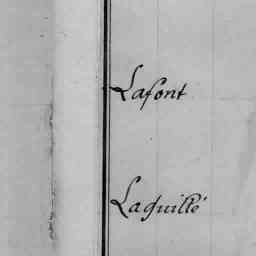 Lafont
Laquille